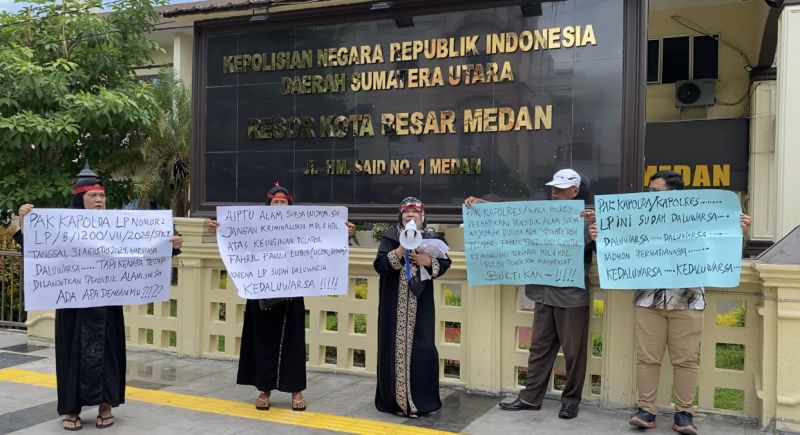 KEPOLISIAN NEGARA REPUBLIK INDONESIA
DAERAH SUMATERA UTARA
RESOR KOTA BESAR MEDAN
JL. HM. SAID NO. 1 MEDAN
MEDAN
PAK KAPOLDA LP NOMOR :
LP/B/1200/VII/2024/STKP
TANGGAL 31 AGUSTUS 2024 HARINYA
DALUWARSA ..... TAPI KENAPA TETAP
DILANJUTKAN PENYIDIK ALAM
ADA APA DENGANMU ?????
AIPTU ALAM SURYA WIJAYA, SH
JANGAN KRIMINALISASI MDL & HBL
ATAS KEINGINAN PELAPOR
FAHRUL FAUZI LUBIS
KARENA LP SUDAH DALUWARSA
KEDALUWARSA !!!!!
PAK KAPOLRES/
PERHATIKAN PENYIDIK ALAM, SH
FAHRUL FAUZI LUBIS
KRIMINALISASI TERHADAP MDL & HBL
POLISI PENGAYOM MASYARAKAT
BUKTIKAN .... !!!!
PAK KAPOLDA/KAPOLRES........
LP INI SUDAH DALUWARSA.....
DALUWARSA......DALUWARSA.....
MOHON PERHATIANNYA.
KEDALUWARSA.....KEDALUWARSA....